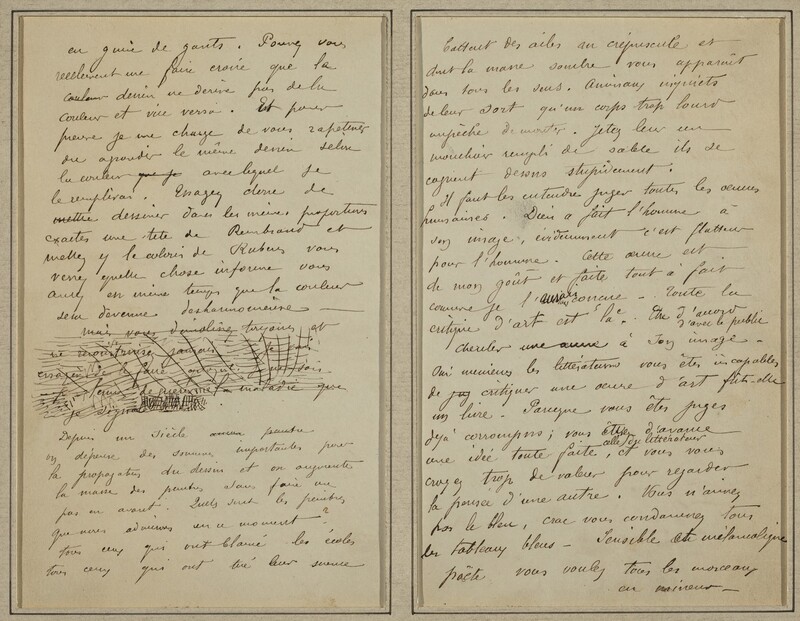 en guise de gants. Pouvez vous
réellement me faire croire que la
couleur dessin ne derive pas de la
couleur et vice versa. Et pour
preuve je me charge de vous rapetisser
ou agrandir le même dessin selon
la couleur avec lequel je
le remplirai. Essayez donc de
mettre dessiner dans les mêmes proportions
exactes une tete de Rembrand et
mettez y le coloris de Rubens vous
verrez quelle chose informe vous
aurez en même temps que la couleur
sera devenue desharmonieuse —
mais vous toujours et
ne
je
la maladie que
je signale
Depuis un siècle
on depense des sommes importantes pour
la propagation du dessin et on augmente
la masse des peintres sans faire un
pas en avant. Quels sont les peintres
que nous admirons en ce moment?
tous ceux qui ont blamé les écoles
tous ceux qui ont tiré leur science
battant des ailes au crépuscule et
dont la masse sombre vous apparaît
dans tous les sens. Animaux inquiets
de leur sort qu'un corps trop lourd
empêche de monter. Jetez leur un
mouchoir rempli de sable ils se
cognent dessus stupidement.
Il faut les entendre juger toutes les œuvres
humaines. Dieu a fait l'homme à
son image, évidemment c'est flatteur
pour l'homme. Cette œuvre est
de mon goût et faite tout à fait
comme je l'aurais concue — Toute la
critique d'art est là. Etre d'accord
d'avec le public
chercher une œuvre à son image —
Oui messieurs les littérateurs vous êtes incapables
de critiquer une œuvre d'art fût-elle
un livre. Parceque vous êtes juges
déjà corrompus; vous avez d'avance
une idée toute faite, celle du littérateur
et vous vous
croyez trop de valeur pour regarder
la pensée d'une autre. Vous n'aimez
pas le bleu, crac vous condamnez tous
les tableaux bleus — Sensible et mélancolique
poëte vous voulez tous les morceaux
en mineur —